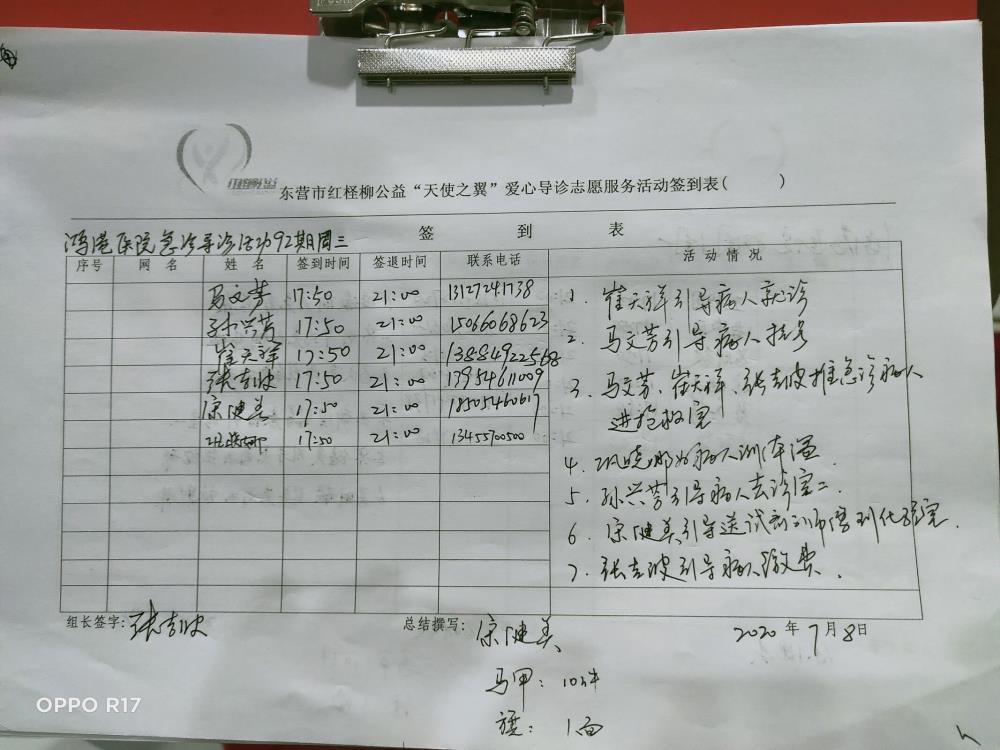 红柽柳公益
东营市红柽柳公益“天使之翼”爱心导诊志愿服务活动签到表( )
签 到 表
鸿港医院急诊导诊活动92期周三
序号 网 名 姓 名 签到时间 签退时间 联系电话 活 动 情 况
马文芳 17:50 21:00 13127241738
孙兴芳 17:50 21:00 15066068623
崔天祥 17:50 21:00 13884922568
张吉波 17:50 21:00 13954611009
宋健美 17:50 21:00 18505460617
巩晓娜 17:50 21:00 13455700500
1. 崔天祥引导病人就诊
2. 马文芳引导病人挂号
3. 马文芳、崔天祥、张吉波推急诊病人
进抢救室
4. 巩晓娜为病人测体温.
5. 孙兴芳引导病人去诊室二.
6. 宋健美引导送试剂 到化验室.
7. 张吉波引导病人缴费.
组长签字: 张吉波 总结撰写: 宋健美 2020年7月8日
马甲: 10件
旗: 1面
OPPO R17